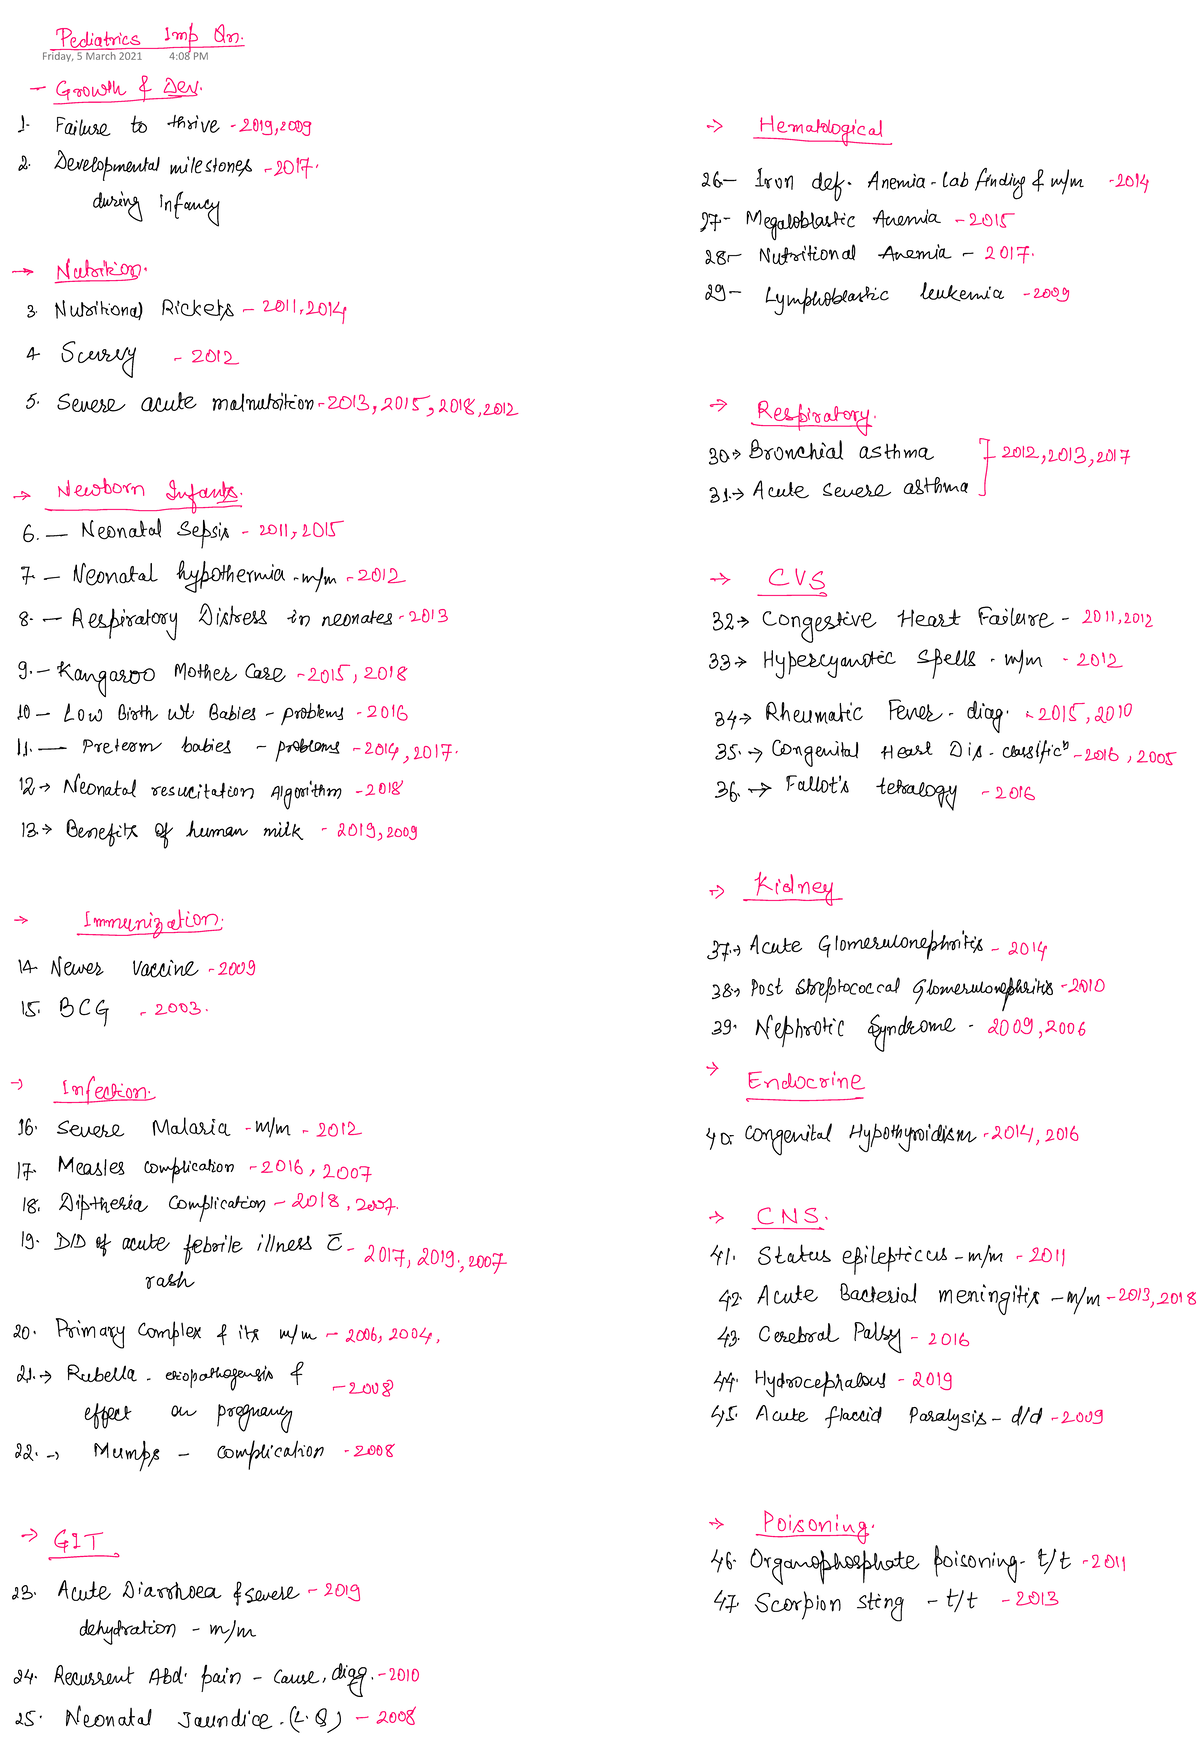 Pediatrics Imp Qn.
Friday, 5 March 2021 4:08 PM
- Growth & Dev.
1. Failure to thrive - 2019,2009
2. Developmental milestones - 2017.
during infancy
→ Nutrition.
3. Nutritional Rickets - 2011,2014
4. Scurvy - 2012
5. Severe acute malnutrition - 2013, 2015, 2018, 2012
→ Newborn Infants.
6. - Neonatal Sepsis - 2011, 2015
7. - Neonatal hypothermia - m/m - 2012
8. - Respiratory Distress in neonates - 2013
9. - Kangaroo Mother Care - 2015, 2018
10 - Low Birth wt Babies - problems - 2016
11. - Preterm babies - problems - 2014, 2017.
12 → Neonatal resucitation Algorithm - 2018
13. → Benefits of human milk - 2019, 2009
→ Immunization.
14. Newer vaccine - 2009
15. BCG - 2003.
→ Infection.
16. Severe Malaria - m/m - 2012
17. Measles complication - 2016, 2007
18. Diptheria Complication - 2018, 2007.
19. D/D of acute febrile illness c̄ - 2017, 2019., 2007
rash
20. Primary Complex & its m/m - 2006, 2004,
21. → Rubella - etiopathogensis & - 2008
effect on pregnancy
22. → Mumps - complication - 2008
→ GIT
23. Acute Diarrhoea & severe - 2019
dehydration - m/m
24. Recurrent Abd. pain - cause, diag. - 2010
25. Neonatal Jaundice. (L.Q) - 2008
→ Hematological
26 - Iron def. Anemia - lab finding & m/m - 2014
27 - Megaloblastic Anemia - 2015
28 - Nutritional Anemia - 2017.
29 - Lymphoblastic leukemia - 2009
→ Respiratory.
30 → Bronchial asthma ] 2012, 2013, 2017
31. → Acute severe asthma
→ CVS
32 → Congestive Heart Failure - 2011,2012
33 → Hypercyanotic spells - m/m - 2012
34 → Rheumatic Fever - diag. - 2015, 2010
35. → Congenital Heart Dis - classificⁿ - 2016, 2005
36. → Fallot's tetralogy - 2016
→ Kidney
37. → Acute Glomerulonephritis - 2014
38 → Post Streptococcal Glomerulonephritis - 2010
39. Nephrotic Syndrome - 2009, 2006
→ Endocrine
40. Congenital Hypothyroidism - 2014, 2016
→ CNS.
41. Status epilepticus - m/m - 2011
42. Acute Bacterial meningitis - m/m - 2013, 2018
43. Cerebral Palsy - 2016
44. Hydrocephalous - 2019
45. Acute flaccid Paralysis - d/d - 2009
→ Poisoning.
46. Organophosphate poisoning - t/t - 2011
47. Scorpion sting - t/t - 2013